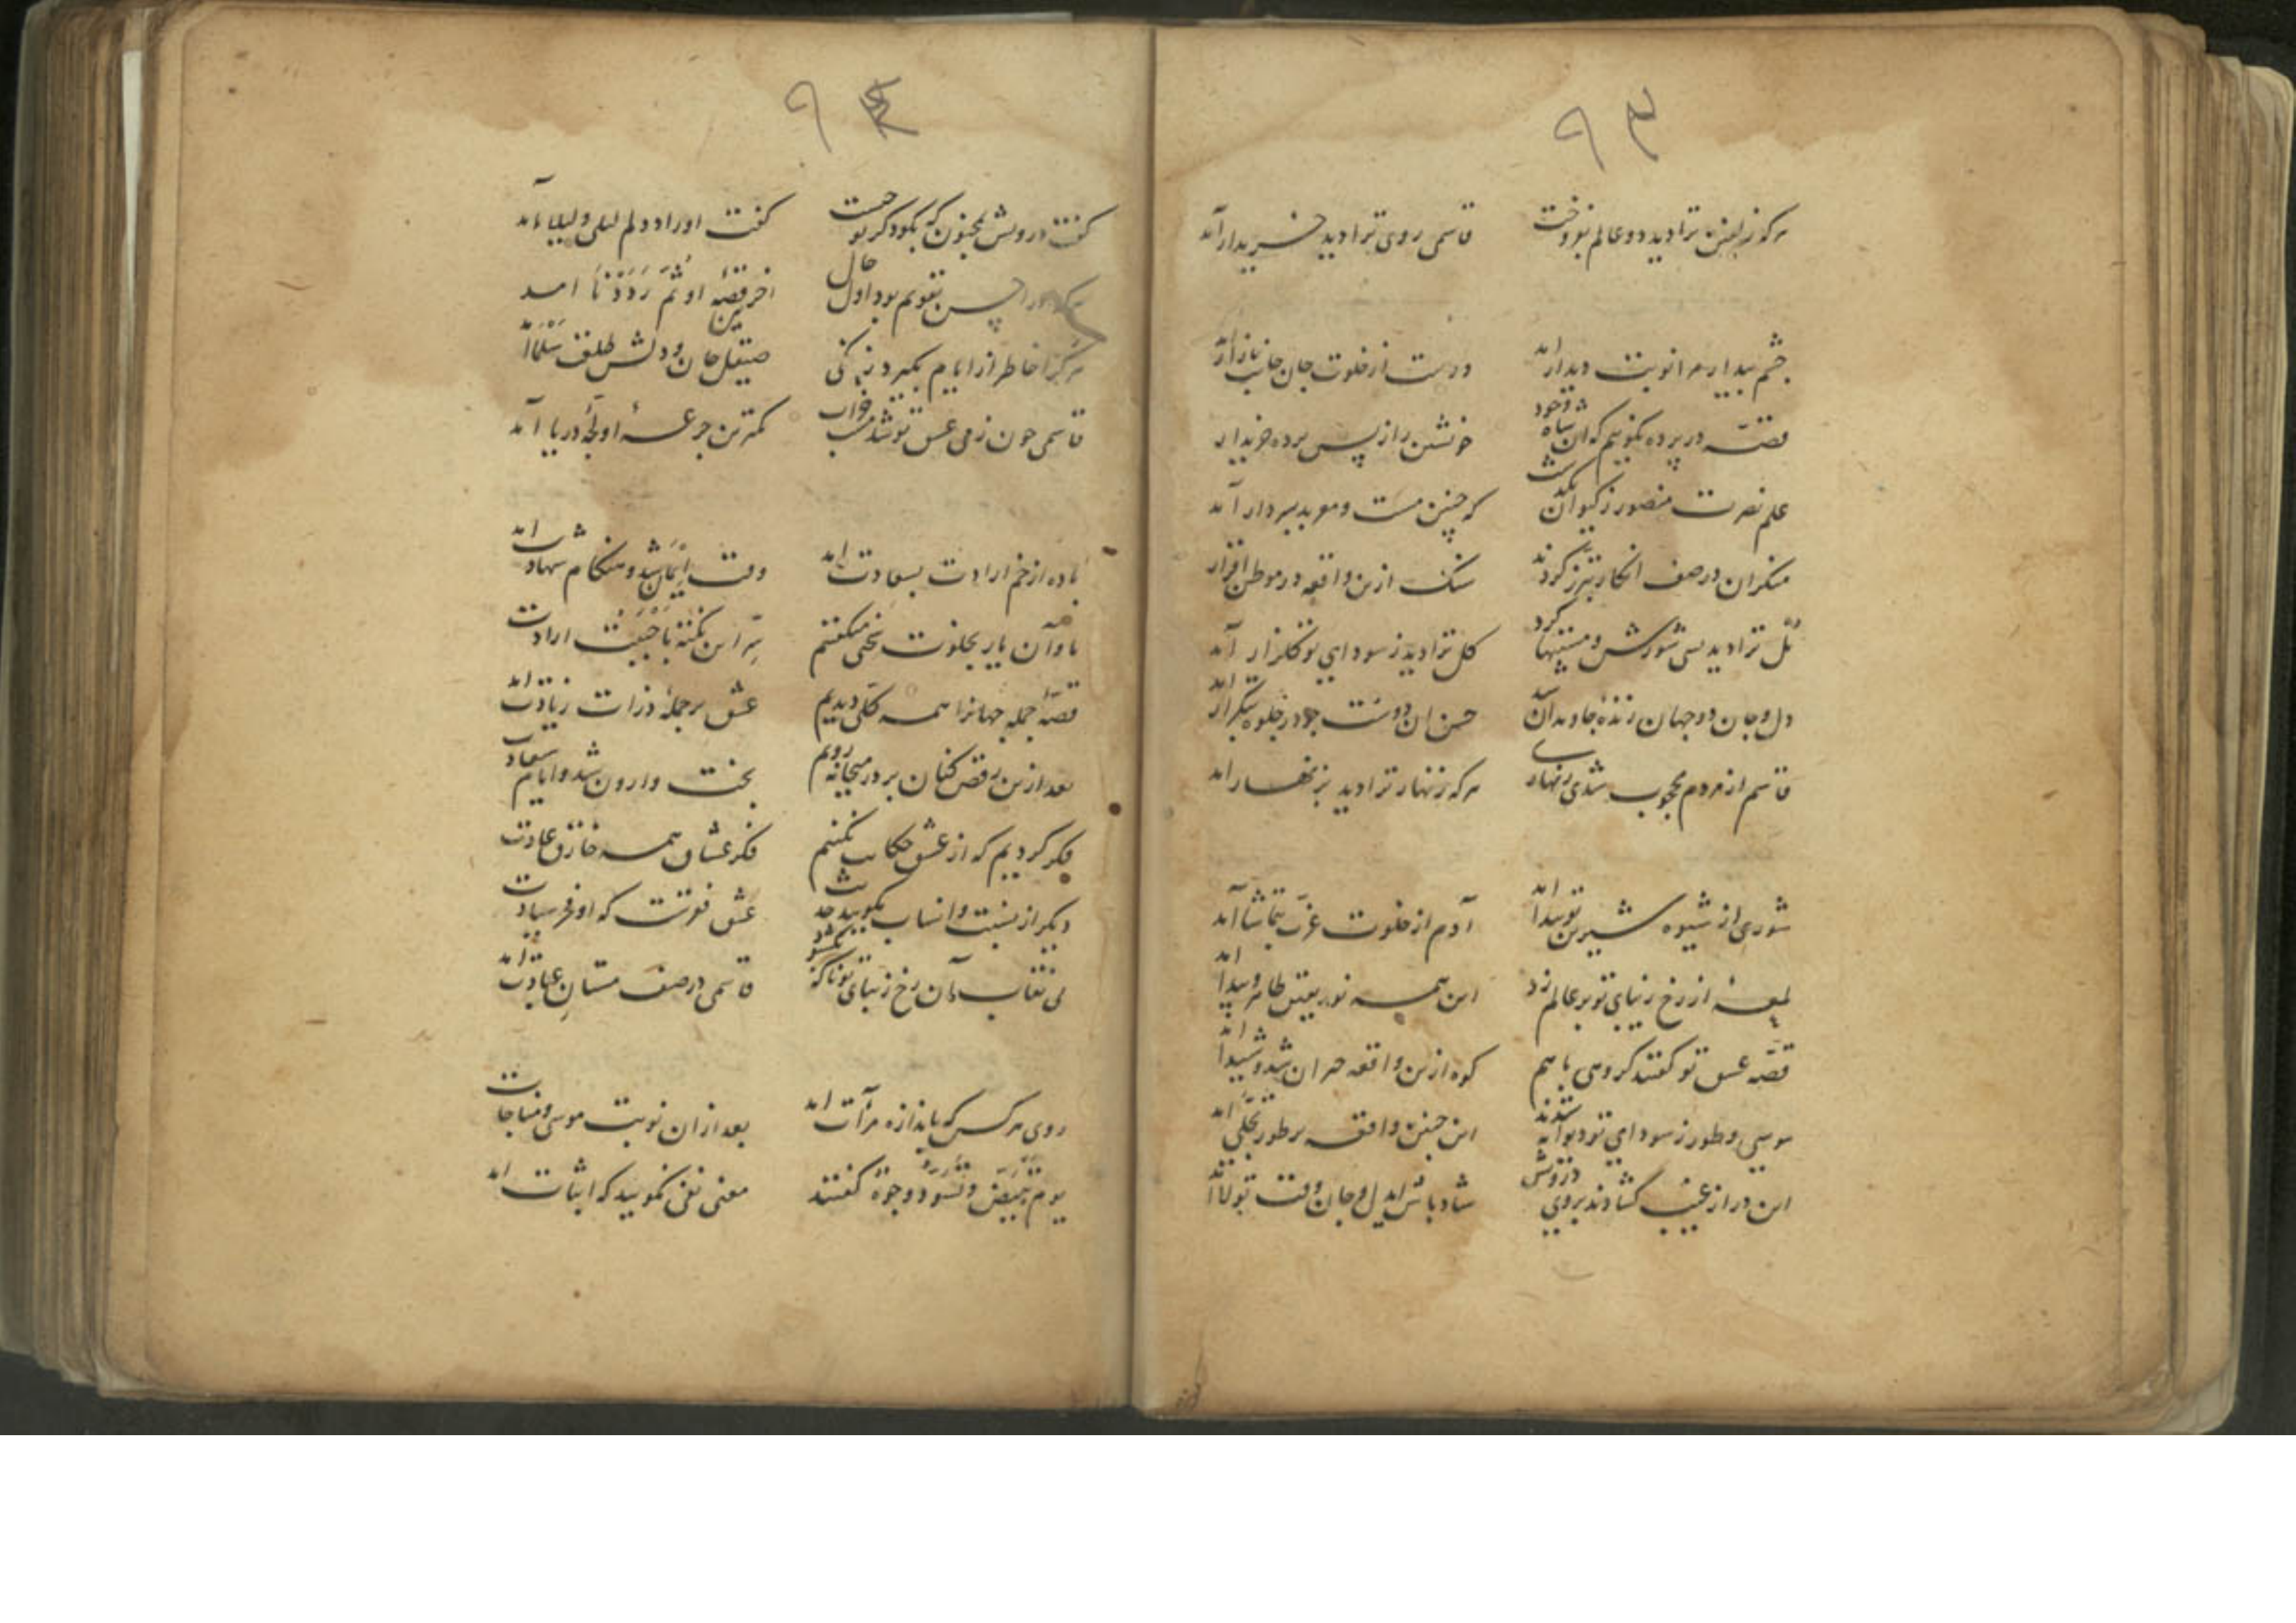 ۹۳
هر که زلفین ترا دید دو عالم بفروخت قاسمی روی ترا دید خریدار آمد
چشم بیدار مرا نوبت دیدار آمد دوست از خلوت جان جانب بازار آمد
قصه در پرده بگوییم که آن شاه وجود خویشتن را ز پس پرده خریدار
علم نصرت منصور ز کیوان بگذشت که چنین مست و موید بسر دار آمد
منکران در صف انکار تبرز کردند سنک ازین واقعه در موطن اقرار
گل ترا دید بسی شورش و مستیها کرد گل ترا دید ز سودای تو گلزار آمد
دل و جان دو جهان زنده جاویدان حسن آن دوست چو در جلوه بتکرار آمد
قاسم از مردم محجوب شدی زنهاری هر که زنهار ترا دید بزنهار آمد
شوری از شیوه شیرین تو پیدا آمد آدم از خلوت عزت بتماشا آمد
لمعه از رخ زیبای تو بر عالم زد این همه نور یقین ظاهر و پیدا آمد
قصه عشق تو گفتند گروهی با هم کوه ازین واقعه حیران شد و شیدا آمد
موسی و طور ز سودای تو دیوانه شدند این چنین واقعه بر طور تجلی آمد
این در از غیب گشادند بروی درویش شاد باش ای دل و جان وقت تولا آمد
۹۴
گفت درویش بمجنون که بگو ذکر تو چیست گفت اوراد دلم لیلی و لیلا آمد
احسن تقویم بود اول حال آخر قصه او ثم رددنا آمد
هر کرا خاطر از ایام بگیرد زنگی صیقل جان و دلش طلعت سلما آمد
قاسمی چون ز می عشق تو شد مست خراب کمترین جرعه او لجه دریا آمد
باده از خم ارادت بسعادت آمد وقت ایمان شد و هنگام شهادت آمد
با و آن یار بخلوت سخنی میگفتم سر این نکته باحببت ارادت
قصه جمله جهانرا همه کلی دیدیم عشق بر جمله ذرات زیادت آمد
بعد ازین رقص کنان بر در میخانه رویم بخت وارون شد و ایام سعادت
فکر کردیم که از عشق حکایت نکنیم فکر عشاق همه خارق عادت
دیگر از نسبت و انساب مگویید حدیث عشق فردست که او فرد سیادت
بی نقاب آن رخ زیبای تو ناگه قاسمی در صف مستان عبادت آمد
روی هر کس که باندازه مرآت آمد بعد از آن نوبت موسی و مناجات
یوم تبیض و تسود وجوه گفتند معنی نفی مگویید که اثبات آمد